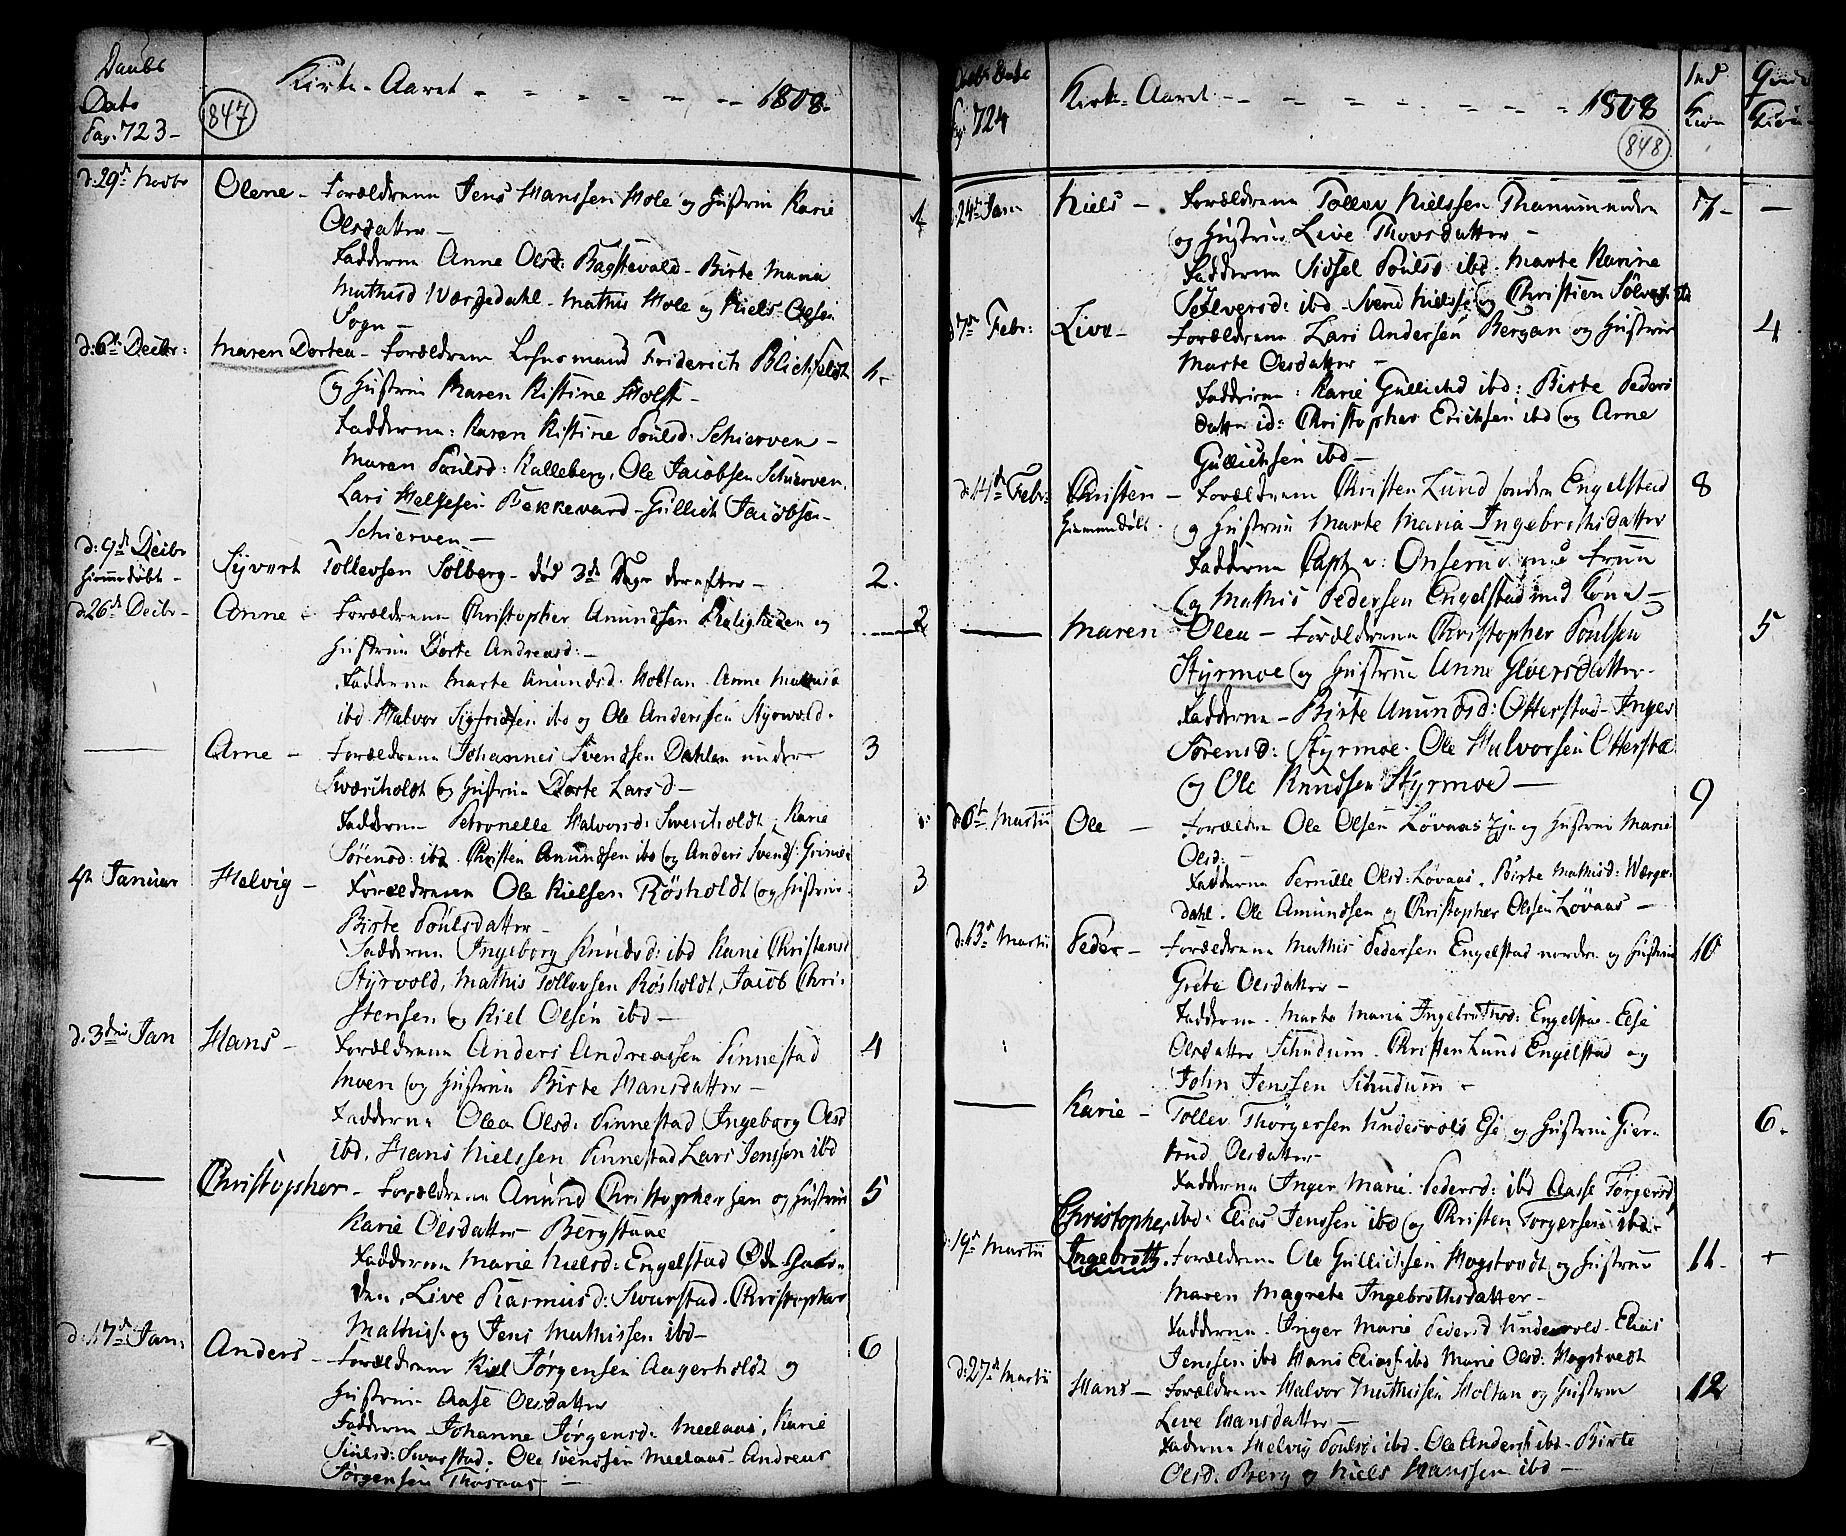 Daabs
Dato
Pag. 723 -
847
Kirke-Aaret - - - - - - 1808.
d: 29de Novbr
Olene - Forældrene Jens Hanssen Hole og Hustrue Karie
Olsdatter -
1
Fadderne Anne Olsd: Bagstevold - Birte Maria
Mathisd Wærgedahl - Mathis Hole og Niels Olsen
Sogn -
d: 6te Decbr:
Maren Dortea - Forældrene Lehnsmand Friderich Blichfeldt
1.
og Hustrue Maren Kistine Holst -
Fadderne: Karen Kistine Poulsd: Schierven -
Maren Poulsd: Kalleberg, Ole Jacobsen Schierven,
Lars Helgesen Bekkevard - Gullich Jacobsen
Schierven -
d: 9de Decbr
hiemedøbt -
Syvert Tollevsen Solberg - død 3de Dage derefter -
2.
d: 26de Decbr -
Anne - Forældrene Christopher Amundsen Roligheden og
2
Hustrue Dorte Andreasd: -
Fadderne Marte Amundsd. Holtan Anne Mathisd
ibd Halvor Sigfridsen ibd og Ole Anderssen Styrvold.
Arne - Forældrene Johannes Svendsen Dahlen under
3
Sweriholdt og Hustrue Dorte Larsd -
Fadderne Petronelle Halvorsd: Sweriholdt, Karie
Sørensd: ibd. Christen Amundsen ibd og Anders Svends:
4de Januar
Helvig - Forældrene Ole Kielsen Røsholdt og Hustrue
3
Birte Poulsdatter -
Fadderne Ingeborg Knudsd: ibd Karie Christensd
Styrvold, Mathis Tollevsen Røsholdt, Jacob Chri-
stensen og Kiel Olsen ibd -
d: 3die Jan
Hans - Forældrene Anders Andreassen Pinnestad
4
Moen og Hustrue Birte Hansdatter -
Fadderne Olea Olsd: Pinnestad Ingeborg Olsd
ibd, Hans Nielssen Pinnestad Lars Jenssen ibd
Christopher - Forældrene Amund Christophersen og Hustrue
5
Karie Olsdatter Bergstuae
Fadderne Marie Nielsd: Engelstad Øde Gaar-
den, Live Rasmusd: Swarstad. Christopher
Mathiss. og Jens Mathissen ibd -
d: 17de Jan:
Anders - Forældrene Kiel Jørgensen Aagerholdt og
6
Hustrue Aase Olsdatter
Fadderne Johanne Jørgensd: Meelaas, Karie
Swarstad. Ole Svendsen Meelaas - Andreas
Jørgensen Thoraas -
Daabs Dato
Pag. 724
Kirke-Aaret - - - - - - 1808
848
Ind
Kiøn
Qvinde
Kiøn
d: 24de Jan
Niels - Forældrene Tollev Nielssen Thanum nedre
7 - -
og Hustrue Live Thorsdatter -
Fadderne Sidsel Poulsd ibd. Marte Karine
Sølversd: ibd - Svend Nielssen og Christien Sølvers ibd
d: 7de Febr:
Live - Forældrene Lars Andersen Bergan og Hustrue
4
Marte Olsdatter -
Fadderne: Karie Gullichsd ibd: Birte Peders
datter id: Christopher Erichsen ibd og Arne
Gullichsen ibd -
d: 14de Febr:
Christen - Forældrene Christen Lund søndre Engelstad
8
Hiemmedøbt.
og Hustrue Marte Maria Ingebrichtsdatter
Fadderne Capt v: Onserud med Frue
og Mathis Pedersen Engelstad med Kone -
Maren Olea - Forældrene Christopher Poulsen
5
Styrmoe og Hustrue Anne Glversdatter -
Fadderne - Birte Amundsd: Otterstad - Inger
Sørensd: Styrmoe. Ole Halvorsen Ottersta
og Ole Knudsen Styrmoe -
d: 6te Martii
Ole - Forældre Ole Olsen Løvaas og Hustrue Marie
9
Olsd: -
Fadderne Pernille Olsd: Løvaas. Birte Mathisd: Wærge
dahl. Ole Amundsen og Christopher Olssen Løvaas -
d: 13de Martii
Peder - Forældrene Mathis Pedersen Engelstad nordre og Hustrue
10
Grete Olsdatter -
Fadderne. Marte Maria Ingebrethsd: Engelstad - Else
Olsdatter Schudum. Christen Lund Engelstad og
John Jenssen Schudum -
Karie - Tollev Thorgersen Undersvold Eje og Hustrue Gier-
6.
trud Olsdatter
Fadderne Inger Marie Pedersd: ibd Aasse Torgersd
ibd. Elias Jenssen ibd og Christen Torgersen ibd -
d: 19de Martii
Christopher
Ingebreth. Forældrene Ole Gullichsen Hogstvedt og Hustrue
11 - +
Maren Magrete Ingebrethsdatter -
Fadderne. Inger Marie Pedersd Undersvold - Elias
Jenssen ibd Hans Eliass: ibd Marie Olsd. Hogstvedt
d: 27de Martii
Hans - Forældrene Halvor Mathissen Holtan og Hustrue
12
Live Hansdatter -
Fadderne Helvig Poulsd: ibd. Ole Anders: ibd - Birte
Olsd. Berg og Niels Hanssen ibd -